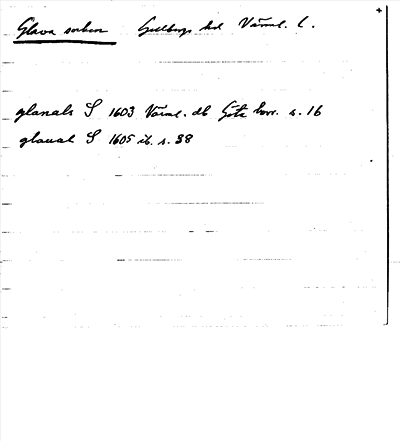 Glava socken Gillbergs hd Värml. l.
glauals S 1603 Värml. db Göta hovr. s. 16
glaual S 1605 ib. s. 38